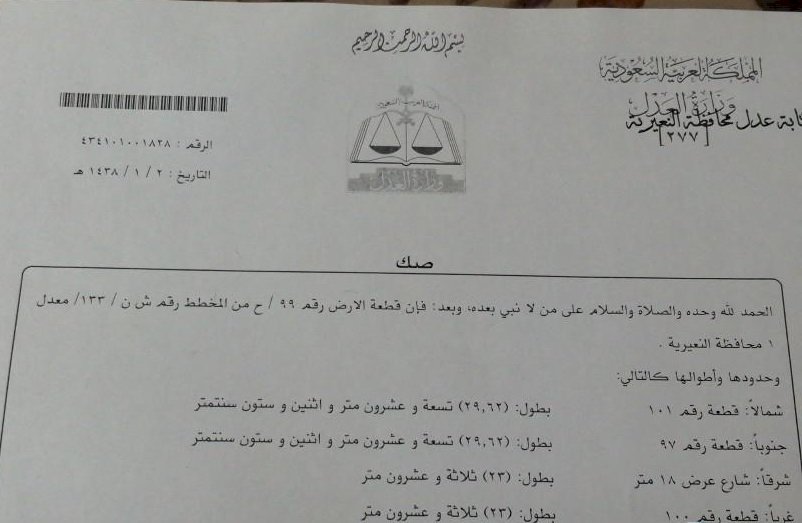 بسم الله الرحمن الرحيم
المملكة العربية السعودية
وزارة العدل
كتابة عدل محافظة النعيرية
[٢٧٧]
المملكة العربية السعودية
وزارة العدل
الرقم : ٤٣٤١٠١٠٠١٨٢٨
التاريخ : ٢ / ١ / ١٤٣٨ هـ
صك
الحمد لله وحده والصلاة والسلام على من لا نبي بعده، وبعد: فإن قطعة الارض رقم ٩٩ / ح من المخطط رقم ش ن / ١٣٣/ معدل
١ محافظة النعيرية .
وحدودها وأطوالها كالتالي:
شمالاً: قطعة رقم ١٠١ بطول: (٢٩,٦٢) تسعة و عشرون متر و اثنين و ستون سنتمتر
جنوباً: قطعة رقم ٩٧ بطول: (٢٩,٦٢) تسعة و عشرون متر و اثنين و ستون سنتمتر
شرقاً: شارع عرض ١٨ متر بطول: (٢٣) ثلاثة و عشرون متر
غرباً: قطعة رقم ١٠٠ بطول: (٢٣) ثلاثة و عشرون متر